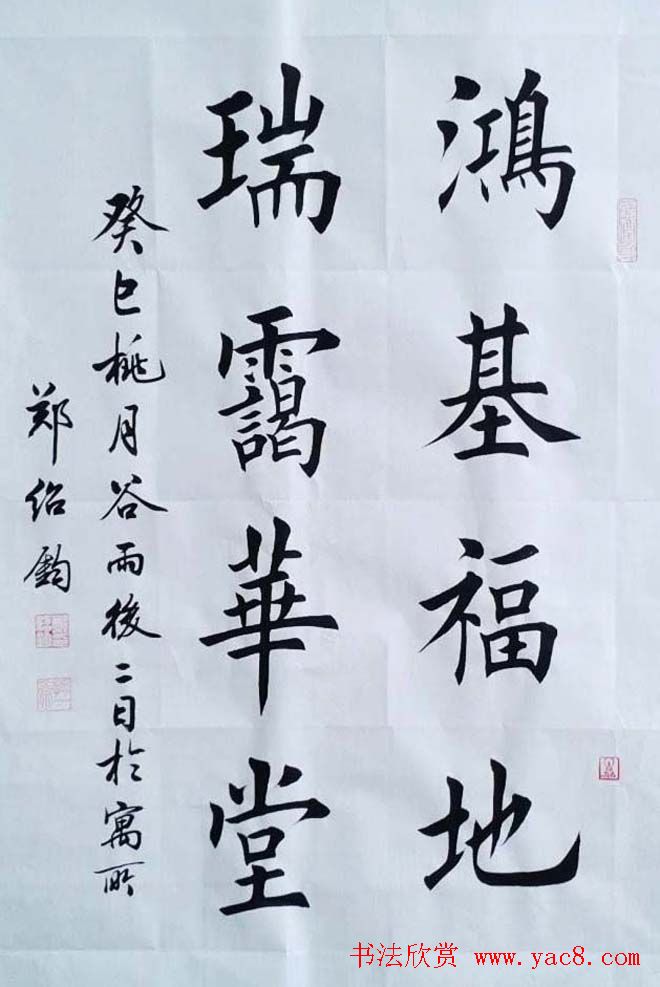 鴻基福地
瑞靄華堂
癸巳桃月谷雨後二日於寓所
郑绍鈞
书法欣赏 www.yac8.com